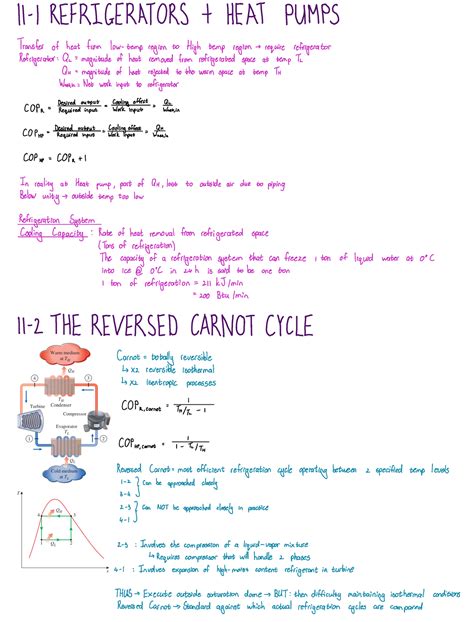 11-1 REFRIGERATORS + HEAT PUMPS
Transfer of heat from low-temp region to High temp region → require refrigerator
Refrigerator: QL = magnitude of heat removed from refrigerated space at temp TL
QH = magnitude of heat rejected to the warm space at temp TH
Wnet,in = Net work input to refrigerator
COPR = Desired output / Required input = Cooling effect / Work input = QL / Wnet,in
COPHP = Desired output / Required input = Cooling effect / Work input = QH / Wnet,in
COPHP = COPR + 1
In reality at Heat pump, part of QH, lost to outside air due to piping
Below unity → outside temp too low
Refrigeration System
Cooling Capacity : Rate of heat removal from refrigerated space
(Tons of refrigeration)
The capacity of a refrigeration system that can freeze 1 ton of liquid water at 0°C
into ice @ 0°C in 24h is said to be one ton
1 ton of refrigeration = 211 kJ/min
= 200 Btu/min
11-2 THE REVERSED CARNOT CYCLE
Warm medium
at TH
QH
4
3
TH
Condenser
Turbine
Compressor
Evaporator
TL
1
2
QL
Cold medium
at TL
Carnot = totally reversible
↳ x2 reversible isothermal
↳ x2 isentropic processes
COPR,carnot = 1 / (TH/TL - 1)
COPHP,carnot = 1 / (1 - TL/TH)
Reversed Carnot = most efficient refrigeration cycle operating between 2 specified temp levels
1-2 } Can be approached closely
3-4
2-3 } Can NOT be approached closely in practice
4-1
T
QH
4
3
1
2
QL
2-3 : Involves the compression of a liquid-vapor mixture
↳ Requires compressor that will handle 2 phases
4-1 : Involves expansion of high-moist content refrigerant in turbine
THUS → Execute outside saturation dome → BUT: then difficulty maintaining isothermal conditions
Reversed Carnot → Standard against which actual refrigeration cycles are compared